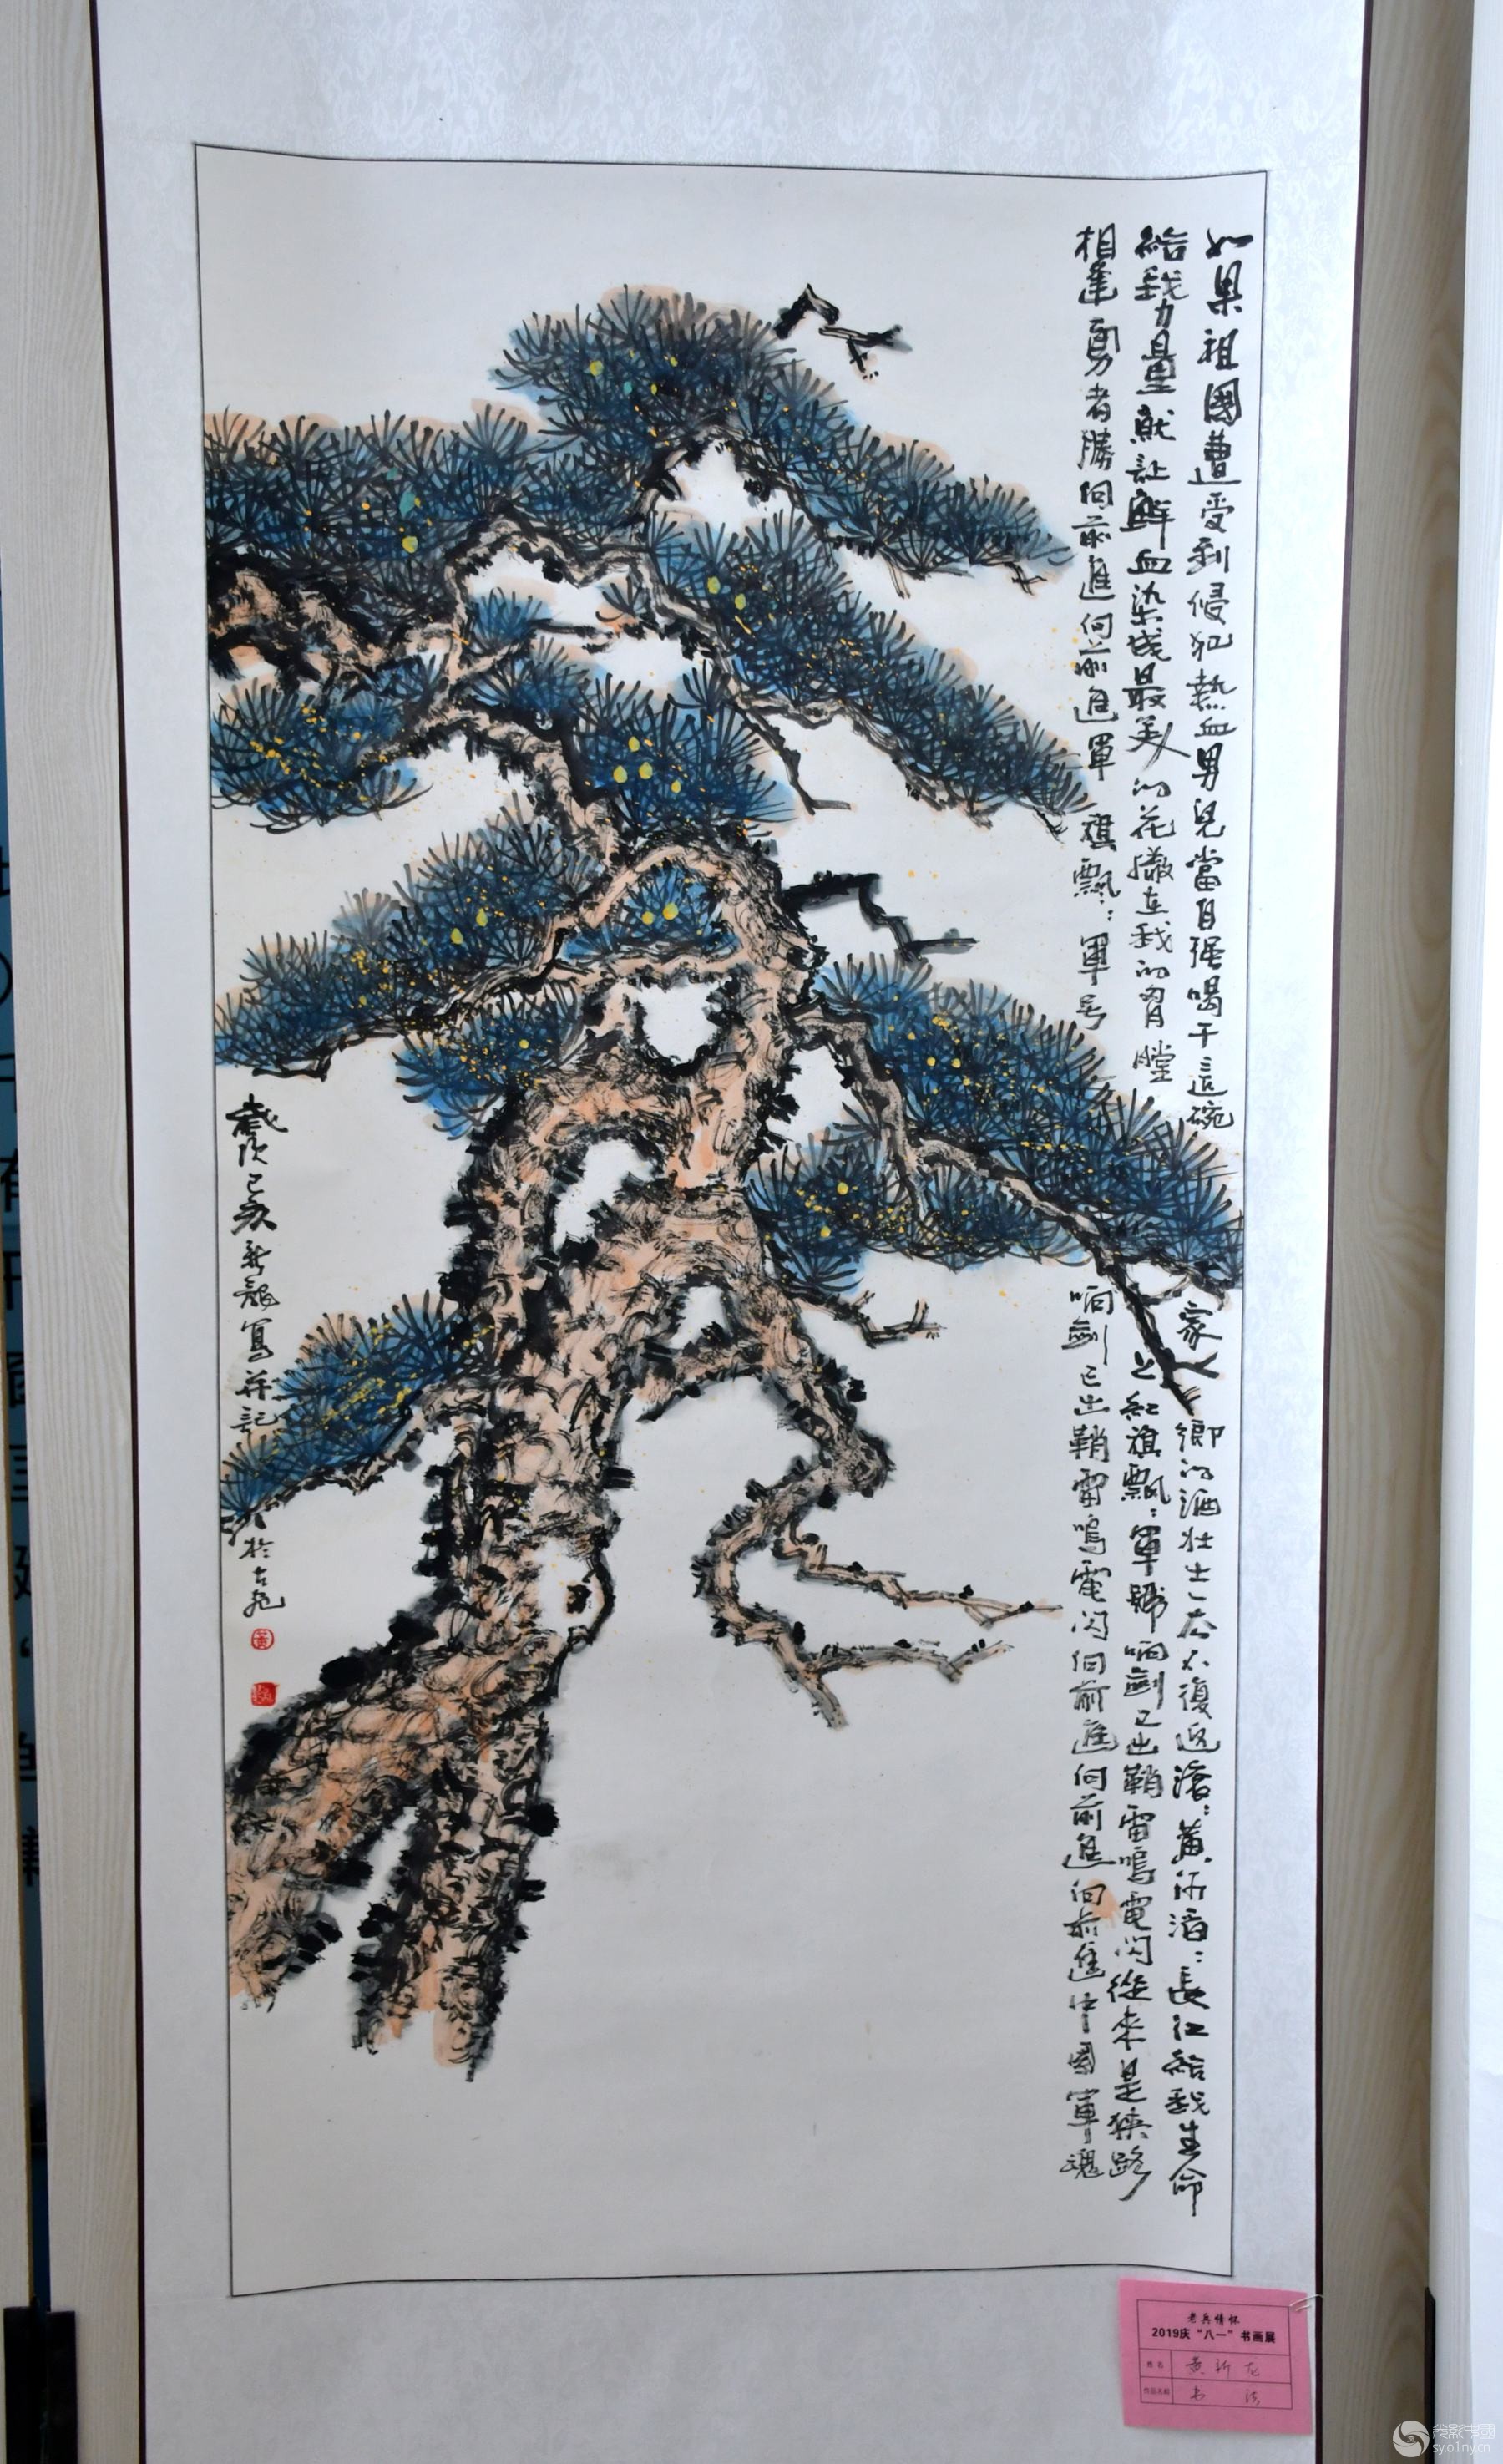 如果祖國遭受到侵犯熱血男兒當自强喝干這碗家鄉的酒壮士一去不復返滚：黄河滔：長江給我生命
給我力量就让鮮血染成最美的花撒在我的胸膛上紅旗飄：軍號响劍已出鞘雷鳴電閃從來是狭路
相逢勇者勝向前進向前進軍旗飄：軍号响劍已出鞘雷鳴電閃向前進向前進向前進中國軍魂
歲次己亥新龍寫并記於古
黄
老兵情怀
2019庆“八一”书画展
姓名 黄新龙
作品名称 书法
光影中國
sy.01ny.cn